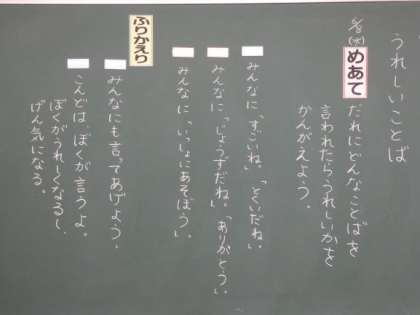 うれしいことば
6/8(水)
めあて
だれにどんなことばを
言われたらうれしいかを
かんがえよう。
みんなに「すごいね」「とくいだね」
みんなに「じょうずだね」「ありがとう」
みんなに「いっしょにあそぼう」
ふりかえり
みんなにも言ってあげよう。
こんどは、ぼくが言うよ。
ぼくがうれしくなるし、
げん気になる。